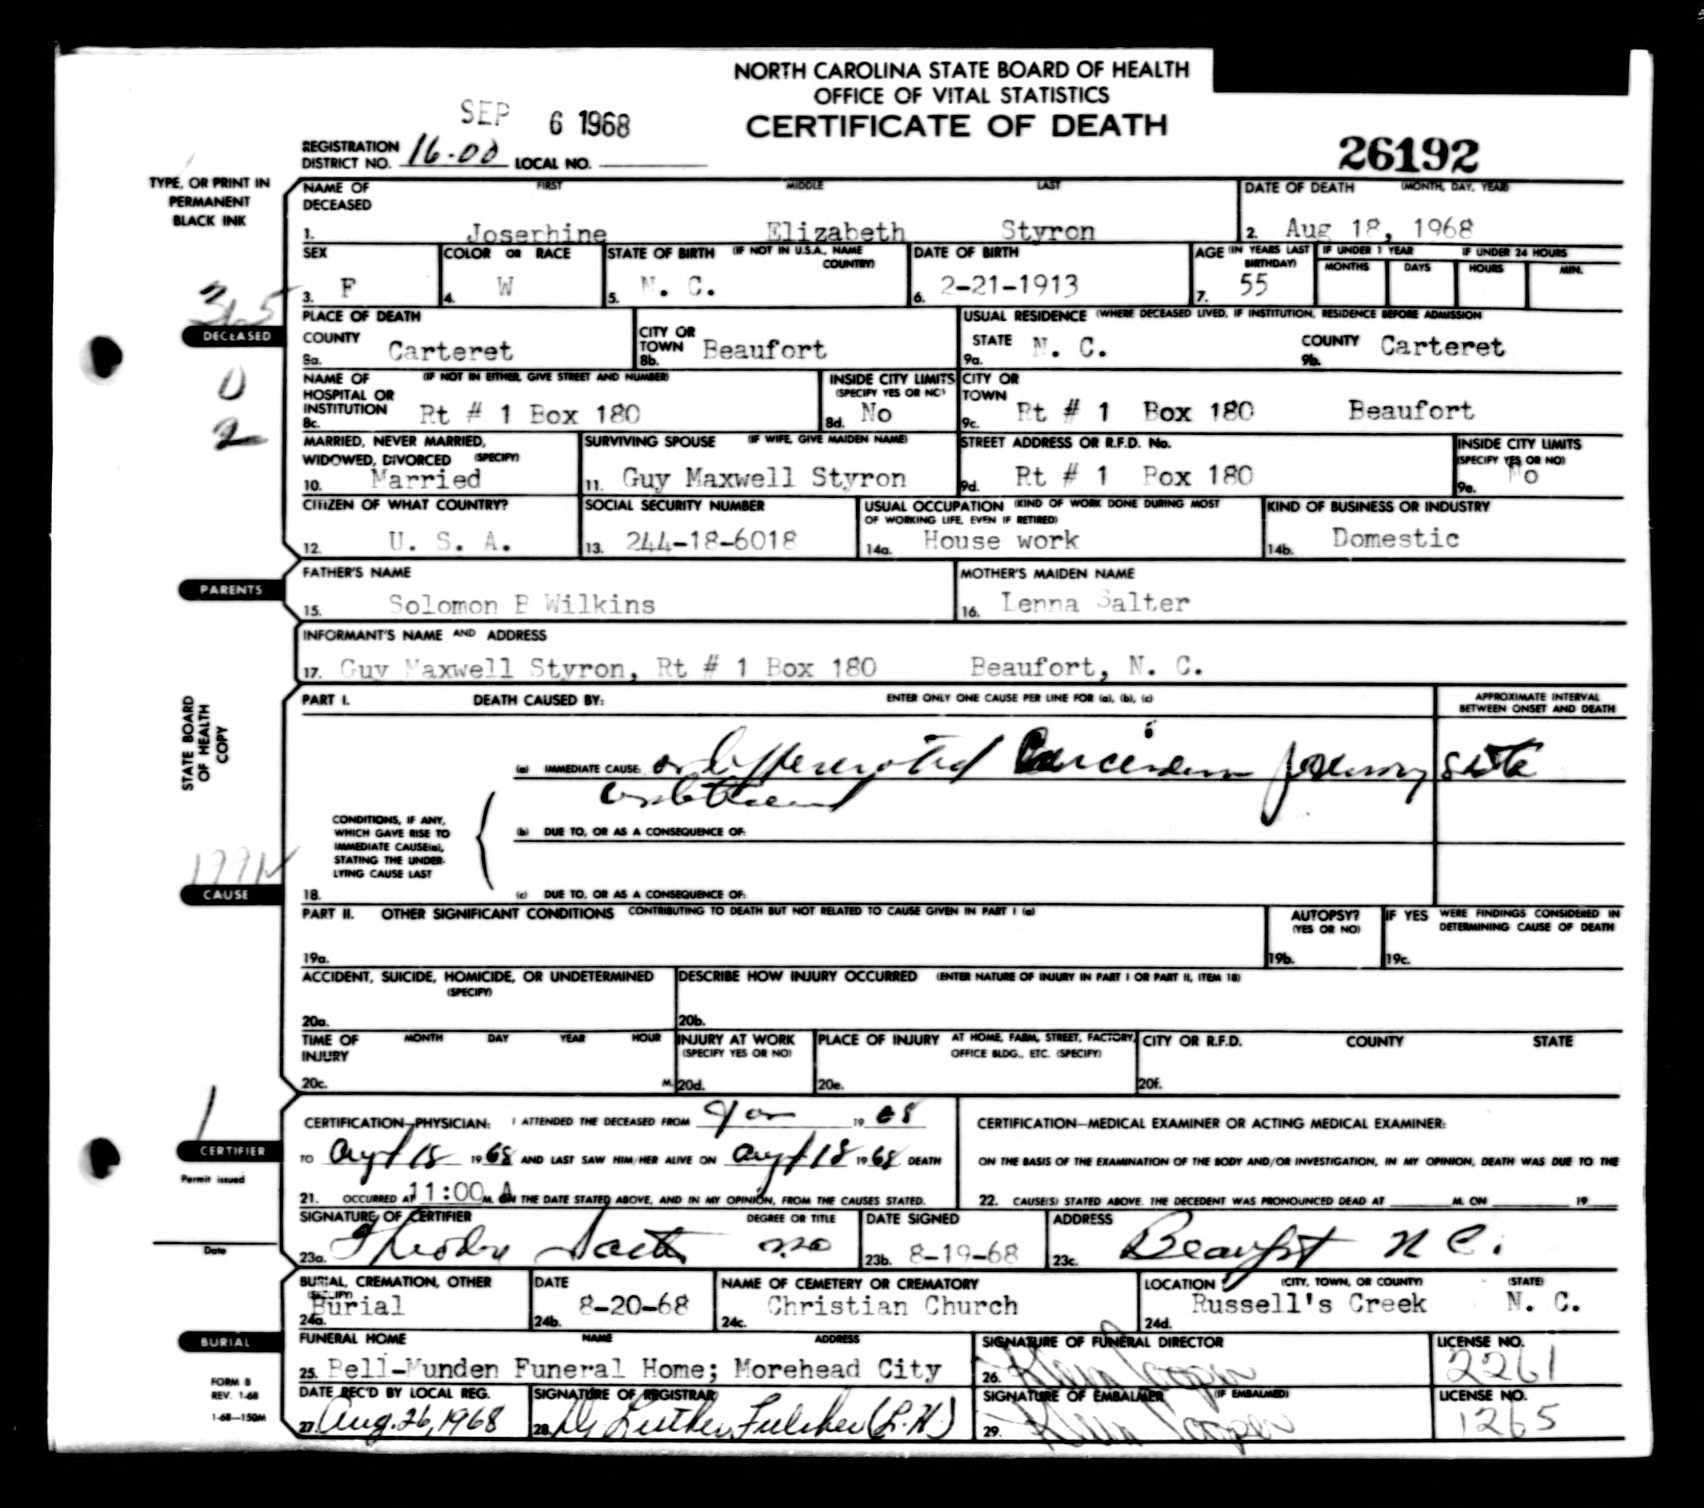 NORTH CAROLINA STATE BOARD OF HEALTH
OFFICE OF VITAL STATISTICS
CERTIFICATE OF DEATH
SEP 6 1968
REGISTRATION DISTRICT NO. 16-00 LOCAL NO.
26192
TYPE, OR PRINT IN
PERMANENT
BLACK INK
NAME OF DECEASED FIRST MIDDLE LAST
1. Josephine Elizabeth Styron
DATE OF DEATH (MONTH, DAY, YEAR)
2. Aug 18, 1968
SEX
3. F
COLOR OR RACE
4. W
STATE OF BIRTH (IF NOT IN U.S.A., NAME COUNTRY)
5. N. C.
DATE OF BIRTH
6. 2-21-1913
AGE (IN YEARS LAST BIRTHDAY)
7. 55
IF UNDER 1 YEAR
MONTHS DAYS
IF UNDER 24 HOURS
HOURS MIN.
DECEASED
0
2
PLACE OF DEATH
COUNTY
8a. Carteret
CITY OR TOWN
8b. Beaufort
USUAL RESIDENCE (WHERE DECEASED LIVED, IF INSTITUTION, RESIDENCE BEFORE ADMISSION
STATE
9a. N. C.
COUNTY
9b. Carteret
NAME OF HOSPITAL OR INSTITUTION (IF NOT IN EITHER, GIVE STREET AND NUMBER)
8c. Rt # 1 Box 180
INSIDE CITY LIMITS
(SPECIFY YES OR NO)
8d. No
CITY OR TOWN
9c. Rt # 1 Box 180 Beaufort
MARRIED, NEVER MARRIED,
WIDOWED, DIVORCED (SPECIFY)
10. Married
SURVIVING SPOUSE (IF WIFE, GIVE MAIDEN NAME)
11. Guy Maxwell Styron
STREET ADDRESS OR R.F.D. No.
9d. Rt # 1 Box 180
INSIDE CITY LIMITS
(SPECIFY YES OR NO)
9e. No
CITIZEN OF WHAT COUNTRY?
12. U. S. A.
SOCIAL SECURITY NUMBER
13. 244-18-6018
USUAL OCCUPATION (KIND OF WORK DONE DURING MOST
OF WORKING LIFE, EVEN IF RETIRED)
14a. House work
KIND OF BUSINESS OR INDUSTRY
14b. Domestic
PARENTS
FATHER'S NAME
15. Solomon B Wilkins
MOTHER'S MAIDEN NAME
16. Lenna Salter
INFORMANT'S NAME AND ADDRESS
17. Guy Maxwell Styron, Rt # 1 Box 180 Beaufort, N. C.
STATE BOARD
OF HEALTH
COPY
PART I. DEATH CAUSED BY: ENTER ONLY ONE CAUSE PER LINE FOR (a), (b), (c)
APPROXIMATE INTERVAL
BETWEEN ONSET AND DEATH
(a) IMMEDIATE CAUSE: site
CONDITIONS, IF ANY,
WHICH GAVE RISE TO
IMMEDIATE CAUSE(a),
STATING THE UNDER-
LYING CAUSE LAST
(b) DUE TO, OR AS A CONSEQUENCE OF:
CAUSE
18. (c) DUE TO, OR AS A CONSEQUENCE OF:
PART II. OTHER SIGNIFICANT CONDITIONS CONTRIBUTING TO DEATH BUT NOT RELATED TO CAUSE GIVEN IN PART I (a)
19a.
AUTOPSY?
(YES OR NO)
19b.
IF YES WERE FINDINGS CONSIDERED IN
DETERMINING CAUSE OF DEATH
19c.
ACCIDENT, SUICIDE, HOMICIDE, OR UNDETERMINED
(SPECIFY)
20a.
DESCRIBE HOW INJURY OCCURRED (ENTER NATURE OF INJURY IN PART I OR PART II, ITEM 18)
20b.
TIME OF INJURY MONTH DAY YEAR HOUR
20c. M.
INJURY AT WORK
(SPECIFY YES OR NO)
20d.
PLACE OF INJURY AT HOME, FARM, STREET, FACTORY,
OFFICE BLDG., ETC. (SPECIFY)
20e.
CITY OR R.F.D. COUNTY STATE
20f.
CERTIFIER
Permit issued
Date
CERTIFICATION—PHYSICIAN: I ATTENDED THE DECEASED FROM Jan 19 68
TO Aug 18 1968 AND LAST SAW HIM/HER ALIVE ON Aug 18 1968 DEATH
21. OCCURRED AT 11:00 A M. ON THE DATE STATED ABOVE, AND IN MY OPINION, FROM THE CAUSES STATED.
CERTIFICATION—MEDICAL EXAMINER OR ACTING MEDICAL EXAMINER:
ON THE BASIS OF THE EXAMINATION OF THE BODY AND/OR INVESTIGATION, IN MY OPINION, DEATH WAS DUE TO THE
22. CAUSE(S) STATED ABOVE. THE DECEDENT WAS PRONOUNCED DEAD AT M. ON 19
SIGNATURE OF CERTIFIER DEGREE OR TITLE
23a. MD
DATE SIGNED
23b. 8-19-68
ADDRESS
23c. Beaufort N C.
BURIAL, CREMATION, OTHER
(SPECIFY)
24a. Burial
DATE
24b. 8-20-68
NAME OF CEMETERY OR CREMATORY
24c. Christian Church
LOCATION (CITY, TOWN, OR COUNTY) (STATE)
24d. Russell's Creek N. C.
BURIAL
FUNERAL HOME NAME ADDRESS
25. Bell-Munden Funeral Home; Morehead City
SIGNATURE OF FUNERAL DIRECTOR
26.
LICENSE NO.
2261
FORM 8
REV. 1-68
1-68—150M
DATE REC'D BY LOCAL REG.
27. Aug. 26, 1968
SIGNATURE OF REGISTRAR
28. Luther Fulcher (L.H.)
SIGNATURE OF EMBALMER (IF EMBALMED)
29.
LICENSE NO.
1265